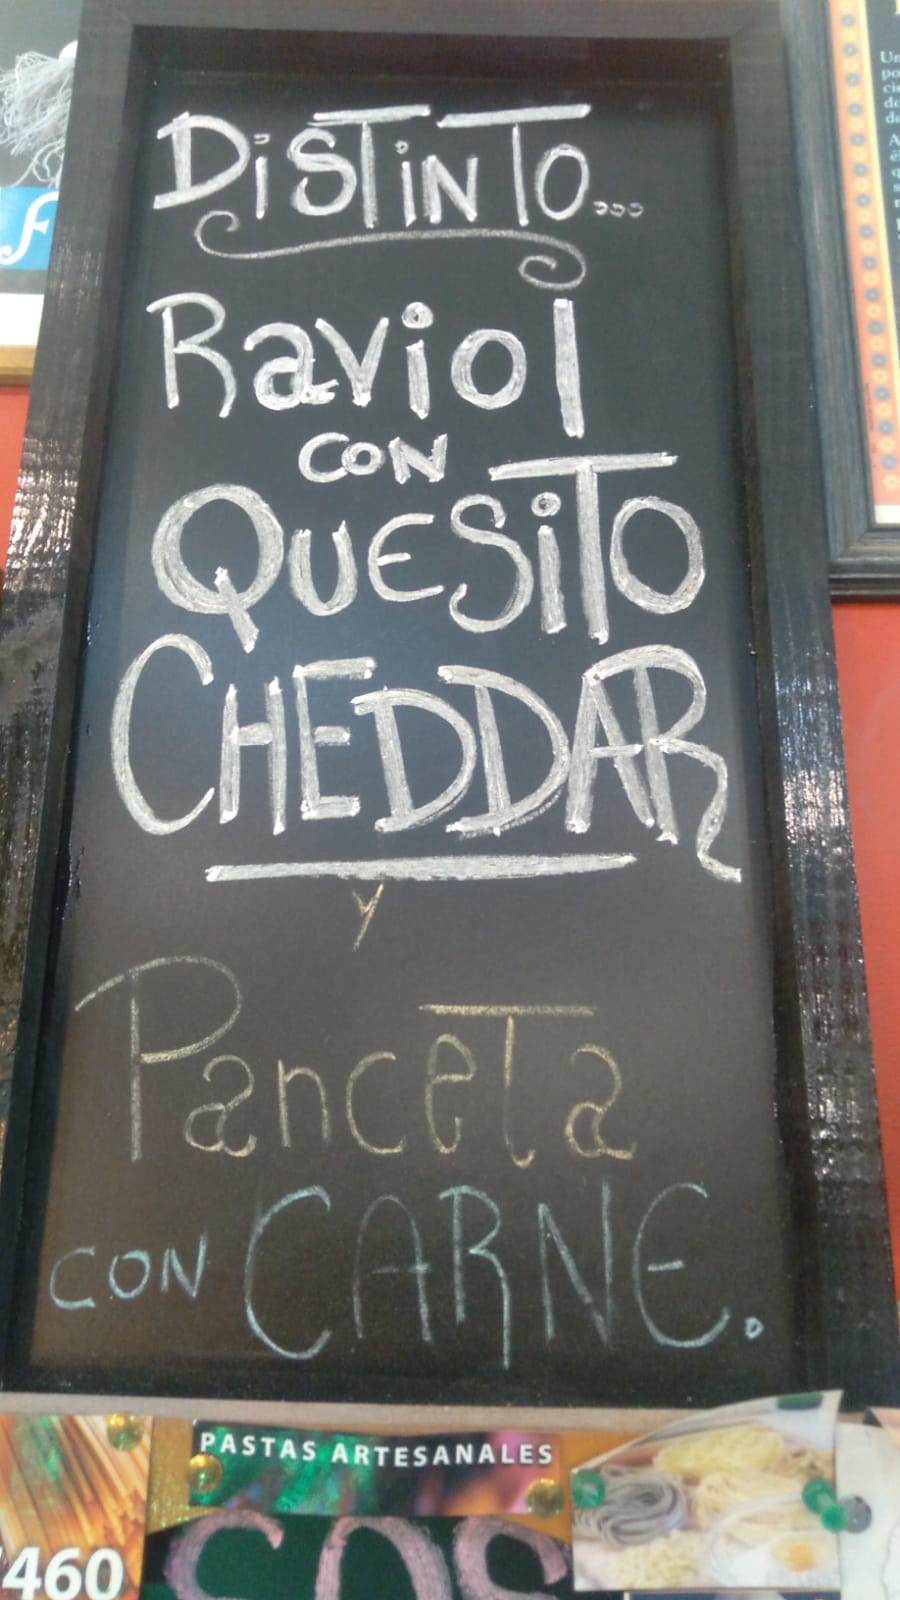 DiSTiNTO...
Raviol
CON
QUESiTO
CHEDDAR
y
Panceta
CON CARNE.
PASTAS ARTESANALES
460